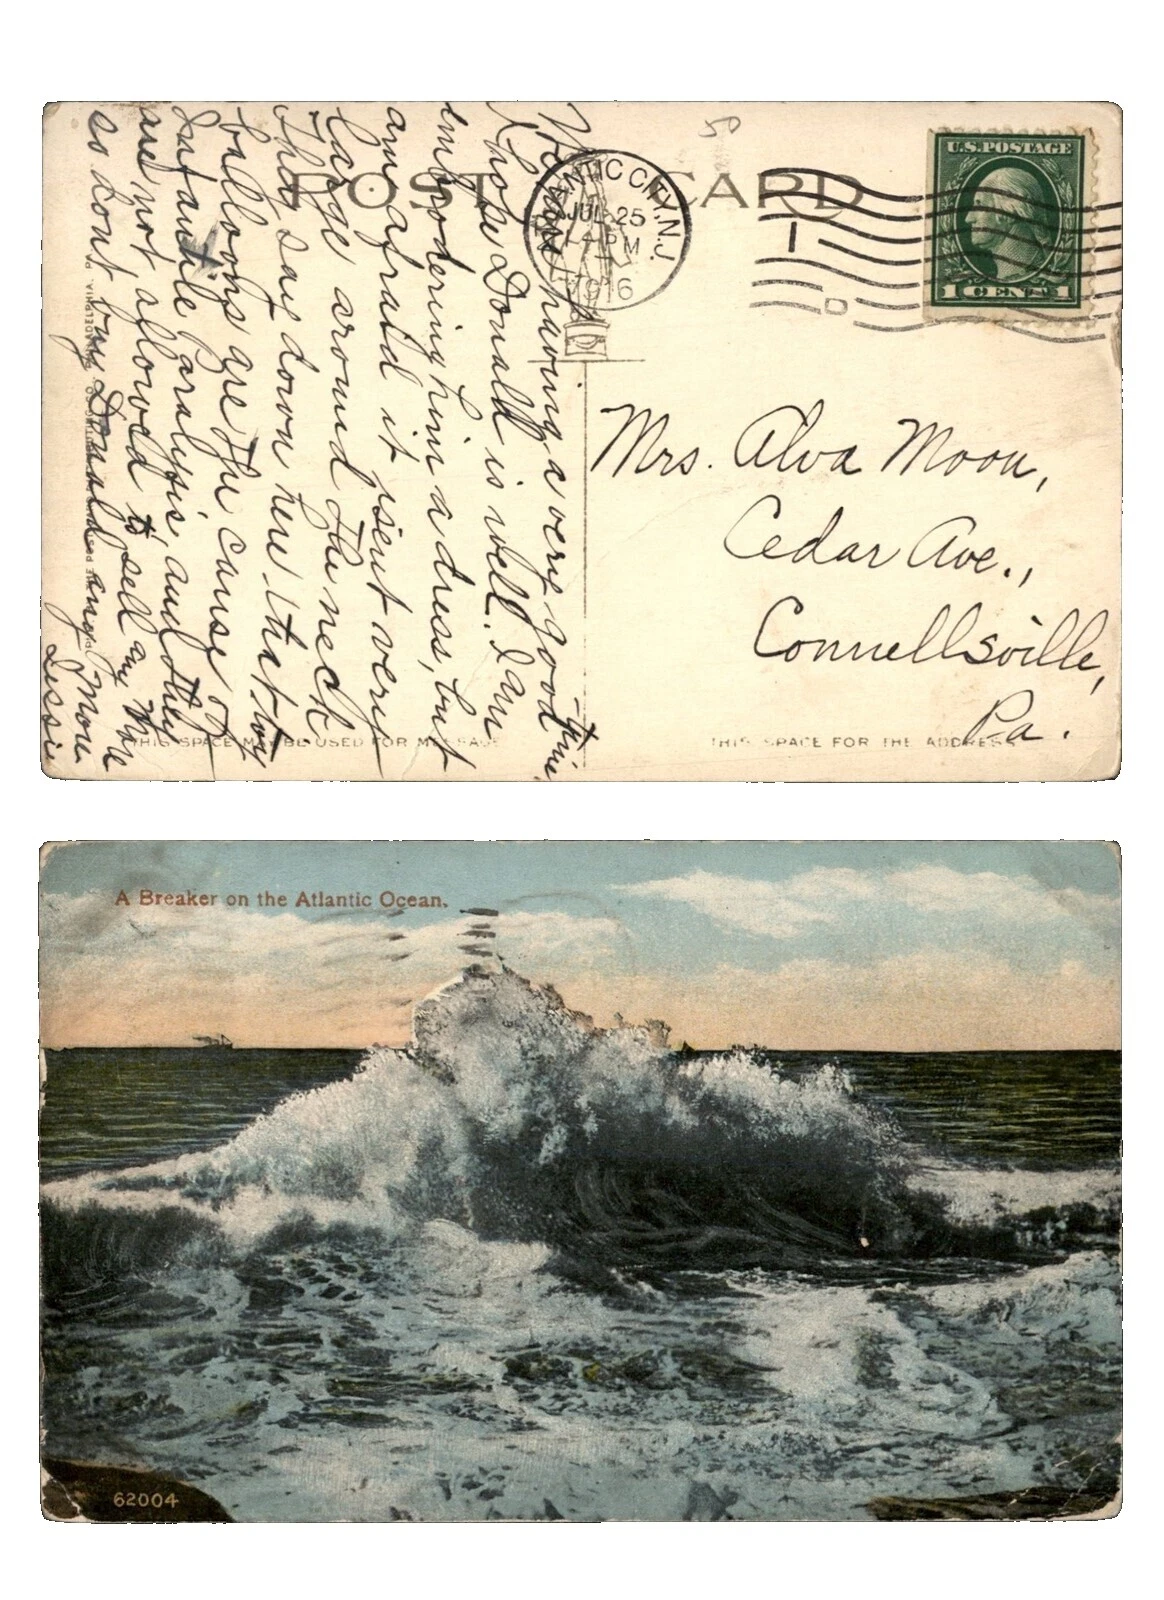 POST CARD
ATLANTIC CITY, N.J.
JUL 25
4 PM
1916
U.S. POSTAGE
1 CENT 1
We are having a very good time
I hope Donald is well. I am
embrodering him a dress, but
am afraid it isent very
large around the neck
They say down here that toy
balloons are the cause of
Infantile Paralysis, and they
are not alowed to sell any more
so dont buy Donald any More
Lessie
Mrs. Alva Moon,
Cedar Ave.,
Connellsville,
Pa.
THIS SPACE MAY BE USED FOR MESSAGE
THIS SPACE FOR THE ADDRESS
A Breaker on the Atlantic Ocean.
62004